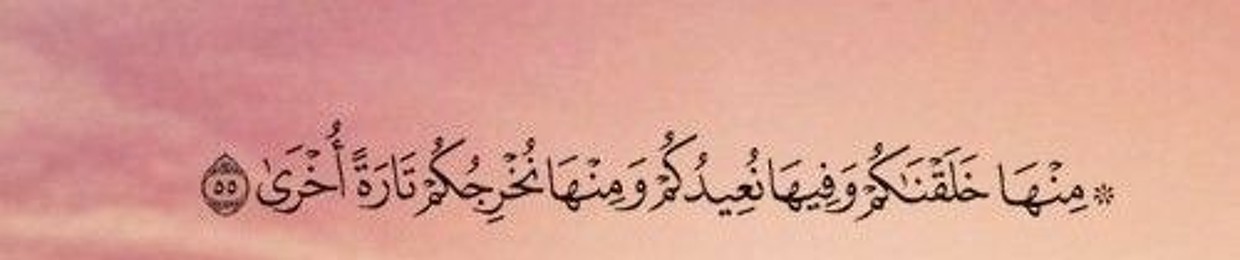 ۞ مِنْهَا خَلَقْنَـٰكُمْ وَفِيهَا نُعِيدُكُمْ وَمِنْهَا نُخْرِجُكُمْ تَارَةً أُخْرَىٰ ٥٥